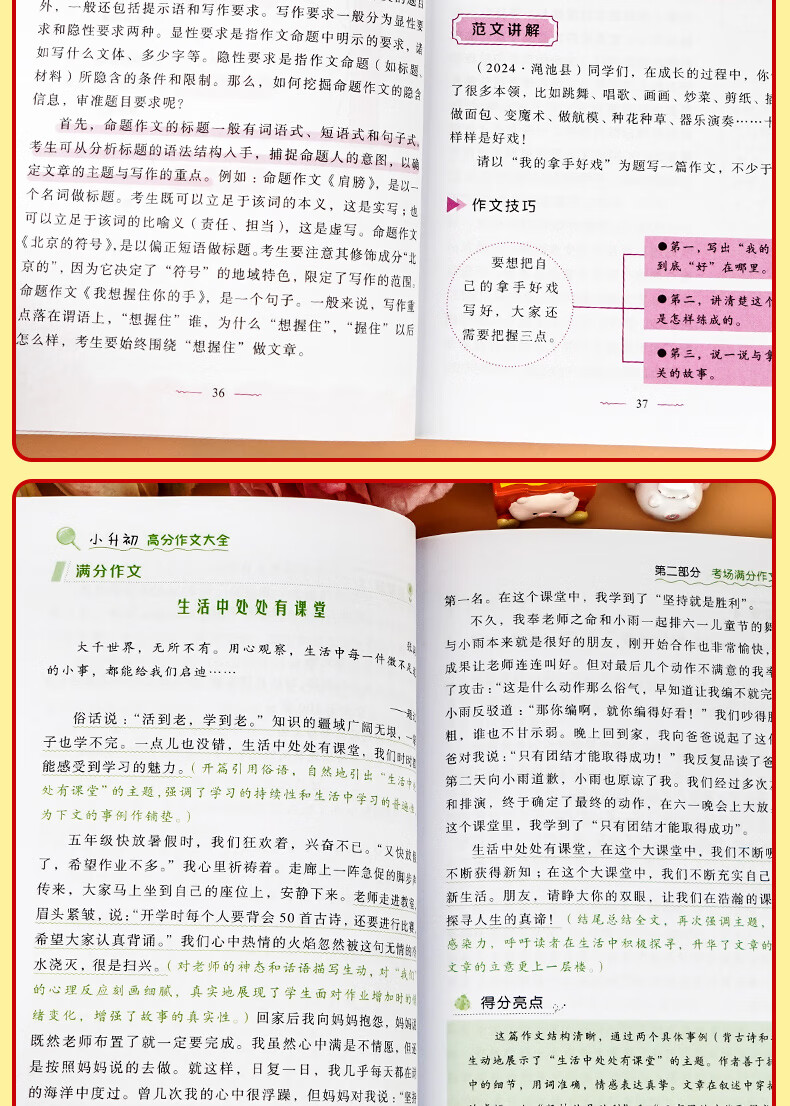 外，一般还包括提示语和写作要求。写作要求一般分为显性要
求和隐性要求两种。显性要求是指作文命题中明示的要求，诸
如写什么文体、多少字等。隐性要求是指作文命题（如标题、
材料）所隐含的条件和限制。那么，如何挖掘命题作文的隐含
信息，审准题目要求呢？
首先，命题作文的标题一般有词语式、短语式和句子式，
考生可从分析标题的语法结构入手，捕捉命题人的意图，以确
定文章的主题与写作的重点。例如：命题作文《肩膀》，是以一
个名词做标题。考生既可以立足于该词的本义，这是实写；也
可以立足于该词的比喻义（责任、担当），这是虚写。命题作文
《北京的符号》，是以偏正短语做标题。考生要注意其修饰成分“北
京的”，因为它决定了“符号”的地域特色，限定了写作的范围。
命题作文《我想握住你的手》，是一个句子。一般来说，写作重
点落在谓语上，“想握住”谁，为什么“想握住”，“握住”以后
怎么样，考生要始终围绕“想握住”做文章。
36
范文讲解
（2024·渑池县）同学们，在成长的过程中，你
了很多本领，比如跳舞、唱歌、画画、炒菜、剪纸、插
做面包、变魔术、做航模、种花种草、器乐演奏……十
样样是好戏！
请以“我的拿手好戏”为题写一篇作文，不少于
作文技巧
要想把自
己的拿手好戏
写好，大家还
需要把握三点。
●第一，写出“我的
到底“好”在哪里。
●第二，讲清楚这个
是怎样练成的。
●第三，说一说与拿
关的故事。
37
小升初 高分作文大全
满分作文
生活中处处有课堂
大千世界，无所不有。用心观察，生活中每一件微不足道
的小事，都能给我们启迪……
俗话说：“活到老，学到老。”知识的疆域广阔无垠，一辈
子也学不完。一点儿也没错，生活中处处有课堂，我们时时都
能感受到学习的魅力。（开篇引用俗语，自然地引出“生活中
处有课堂”的主题，强调了学习的持续性和生活中学习的普遍性
为下文的事例作铺垫。）
五年级快放暑假时，我们狂欢着，兴奋不已。“又快放假
了，希望作业不多。”我心里祈祷着。走廊上一阵急促的脚步声
传来，大家马上坐到自己的座位上，安静下来。老师走进教室，
眉头紧皱，说：“开学时每个人要背会50首古诗，还要进行比赛，
希望大家认真背诵。”我们心中热情的火焰忽然被这句无情的冷
水浇灭，很是扫兴。（对老师的神态和话语描写生动，对“我们”
的心理反应刻画细腻，真实地展现了学生面对作业增加时的情
绪变化，增强了故事的真实性。）回家后我向妈妈抱怨，妈妈说
既然老师布置了就一定要完成。我虽然心中满是不情愿，但还
是按照妈妈说的去做。就这样，日复一日，我几乎每天都在诗
的海洋中度过。曾几次我的心中很浮躁，但妈妈对我说：“坚持
第二部分 考场满分作文
第一名。在这个课堂中，我学到了“坚持就是胜利”。
不久，我奉老师之命和小雨一起排六一儿童节的舞
与小雨本来就是很好的朋友，刚开始合作也非常愉快，
成果让老师连连叫好。但对最后几个动作不满意的我率
了攻击：“这是什么动作那么俗气，早知道让我编不就完
小雨反驳道：“那你编啊，就你编得好看！”我们吵得脸
粗，谁也不甘示弱。晚上回到家，我向爸爸说起了这件
爸对我说：“只有团结才能取得成功！”我反复品读了爸
第二天向小雨道歉，小雨也原谅了我。我们经过多次
和排演，终于确定了最终的动作，在六一晚会上大放
这个课堂里，我学到了“只有团结才能取得成功”。
生活中处处有课堂，在这个大课堂中，我们不断吸
不断获得新知；在这个大课堂中，我们不断充实自己
新生活。朋友，请睁大你的双眼，让我们在浩瀚的课
探寻人生的真谛！（结尾总结全文，再次强调主题，
感染力，呼吁读者在生活中积极探寻，升华了文章的
文章的立意更上一层楼。）
得分亮点
这篇作文结构清晰，通过两个具体事例（背古诗和
生动地展示了“生活中处处有课堂”的主题。作者善于
中的细节，用词准确，情感表达真挚。文章在叙述中穿